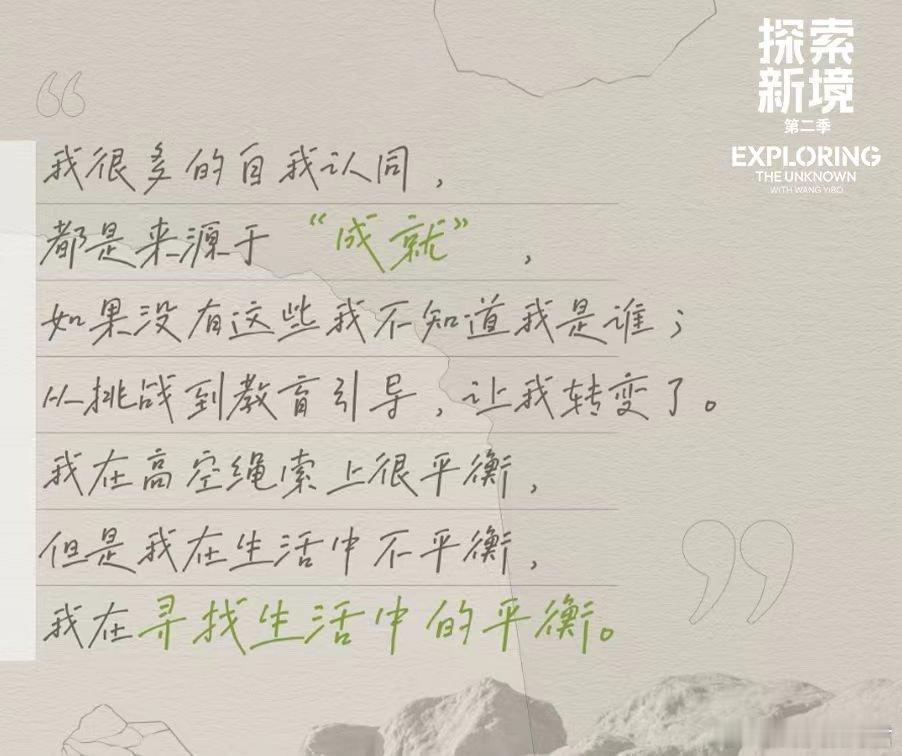 探索
新境
第二季
EXPLORING
THE UNKNOWN
WITH WANG YIBO
“
我很多的自我认同，
都是来源于“成就”，
如果没有这些我不知道我是谁；
从挑战到教育引导，让我转变了。
我在高空绳索上很平衡，
但是我在生活中不平衡，
我在寻找生活中的平衡。
”